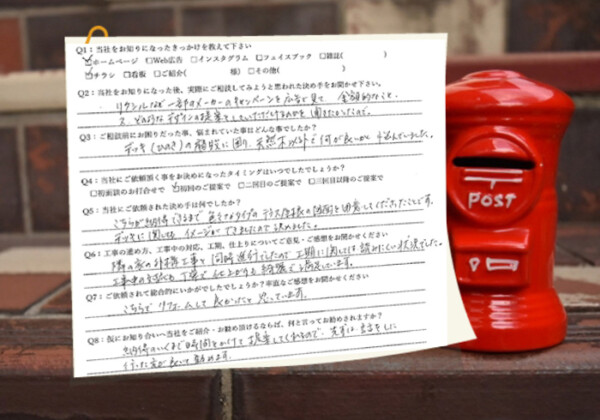 Q1：当社をお知りになったきっかけを教えて下さい
☑ホームページ □Web広告 □インスタグラム □フェイスブック □雑誌( )
☑チラシ □看板 □ご紹介( 様) □その他( )
Q2：当社をお知りになった後、実際にご相談してみようと思われた決め手をお聞かせ下さい。
リクシルなど一部のメーカーのキャンペーンを広告で見て 金額的なこと
Q3：ご相談前にお困りだった事、悩まれていた事はどんな事でしたか？
デッキ(ひのき)の腐敗に困り、天然木以外で何が良いか悩んでいました。
Q4：当社にご依頼頂く事をお決めになったタイミングはいつでしたでしょうか？
□初面談のお打合せで ☑初回のご提案で □二回目のご提案で □三回目以降のご提案で
Q5：当社にご依頼された決め手は何でしたか？
こちらが納得できるまで 色々なタイプの テラス屋根の 図面を用意してくださったことです。
デッキに関しても イメージができましたので 決めました。
Q6：工事の進め方、工事中の対応、工期、仕上りについてご意見・ご感想をお聞かせください
隣の家の外構工事と同時進行でしたので 工期に関しては 読みにくい状況でした。
工事中の対応も 丁寧で 仕上がりも 綺麗で 満足しています。
Q7：ご依頼されて総合的にいかがでしたでしょうか？率直なご感想をお聞かせください
こちらで リフォームして 良かったと 思っています。
Q8：仮にお知り合いへ当社をご紹介・お勧め頂けるならば、何と言ってお勧めされますか？
納得のいくまで時間をかけて 提案してくれるので、まずは 会話をしに
行った方が良いと 勧めます。
POST